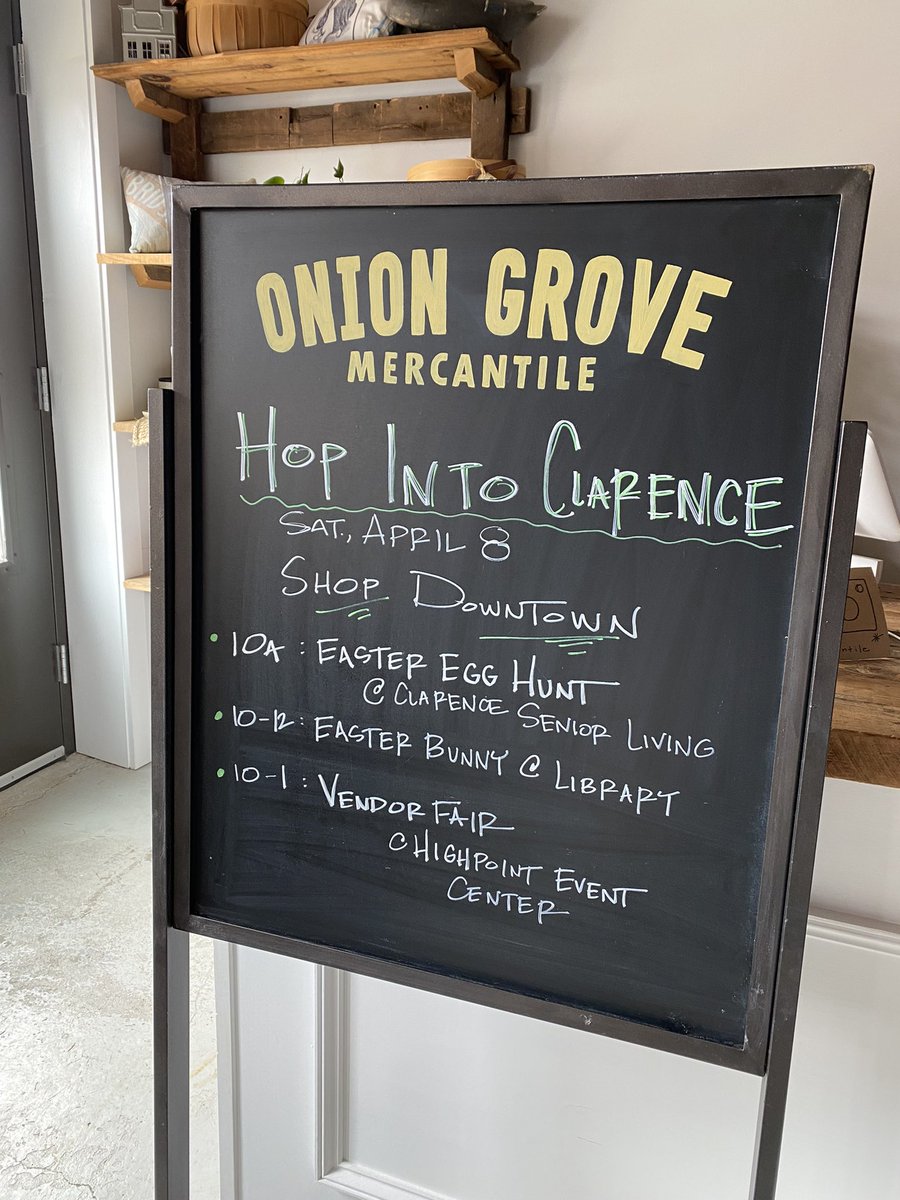 ONION GROVE
MERCANTILE
HOP INTO CLARENCE
SAT., APRIL 8
SHOP DOWNTOWN
• 10A : EASTER EGG HUNT
@ CLARENCE SENIOR LIVING
• 10-12 : EASTER BUNNY @ LIBRARY
• 10-1 : VENDOR FAIR
@ HIGHPOINT EVENT
CENTER